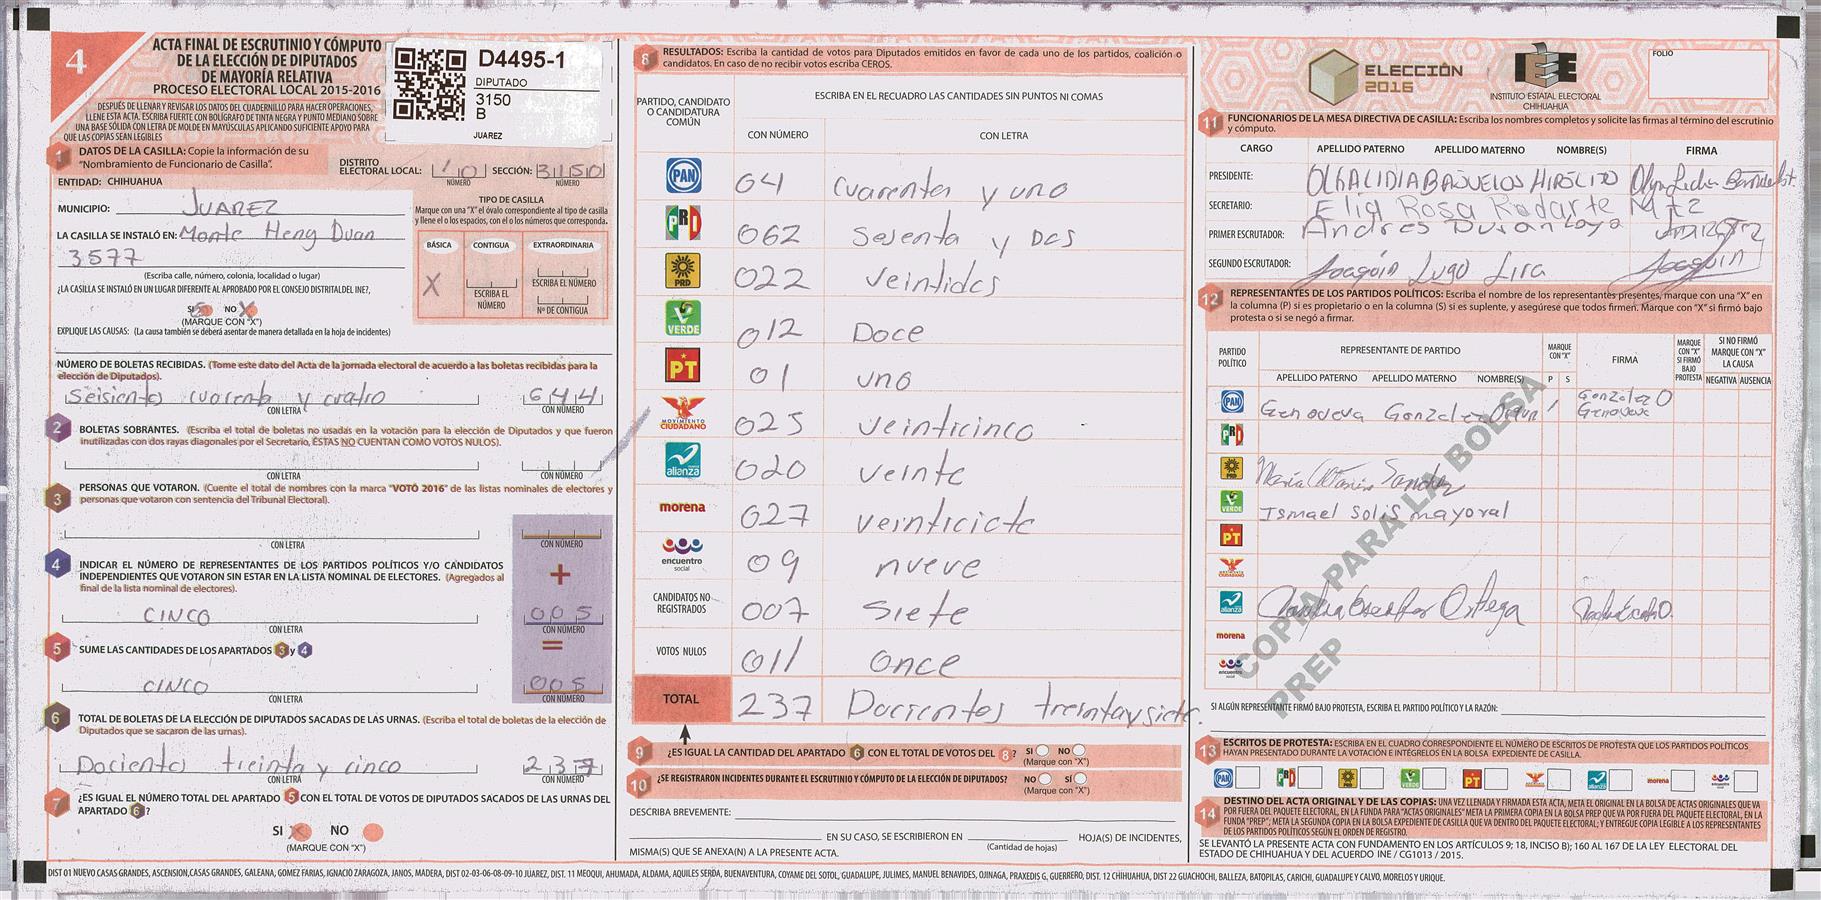 4
ACTA FINAL DE ESCRUTINIO Y CÓMPUTO
DE LA ELECCIÓN DE DIPUTADOS
DE MAYORÍA RELATIVA
PROCESO ELECTORAL LOCAL 2015-2016
DESPUÉS DE LLENAR Y REVISAR LOS DATOS DEL CUADERNILLO PARA HACER OPERACIONES,
LLENE ESTA ACTA. ESCRIBA FUERTE CON BOLÍGRAFO DE TINTA NEGRA Y PUNTO MEDIANO SOBRE
UNA BASE SÓLIDA CON LETRA DE MOLDE EN MAYÚSCULAS APLICANDO SUFICIENTE APOYO PARA
QUE LAS COPIAS SEAN LEGIBLES
D4495-1
DIPUTADO
3150
B
JUAREZ
1 DATOS DE LA CASILLA: Copie la información de su
"Nombramiento de Funcionario de Casilla".
DISTRITO
ELECTORAL LOCAL: 10 SECCIÓN: 3150
NÚMERO NÚMERO
ENTIDAD: CHIHUAHUA
MUNICIPIO: JUAREZ
LA CASILLA SE INSTALÓ EN: Monte Heng Duan
3577
(Escriba calle, número, colonia, localidad o lugar)
TIPO DE CASILLA
Marque con una "X" el óvalo correspondiente al tipo de casilla
y llene el o los espacios, con el o los números que corresponda.
BÁSICA CONTIGUA EXTRAORDINARIA
X
ESCRIBA EL NÚMERO
ESCRIBA EL NÚMERO
Nº DE CONTIGUA
¿LA CASILLA SE INSTALÓ EN UN LUGAR DIFERENTE AL APROBADO POR EL CONSEJO DISTRITAL DEL INE?,
SI NO X
(MARQUE CON "X")
EXPLIQUE LAS CAUSAS: (La causa también se deberá asentar de manera detallada en la hoja de incidentes)
NÚMERO DE BOLETAS RECIBIDAS. (Tome este dato del Acta de la jornada electoral de acuerdo a las boletas recibidas para la
elección de Diputados).
Seisientos cuarenta y cuatro 644
CON LETRA CON NÚMERO
2 BOLETAS SOBRANTES. (Escriba el total de boletas no usadas en la votación para la elección de Diputados y que fueron
inutilizadas con dos rayas diagonales por el Secretario, ÉSTAS NO CUENTAN COMO VOTOS NULOS).
CON LETRA CON NÚMERO
3 PERSONAS QUE VOTARON. (Cuente el total de nombres con la marca "VOTÓ 2016" de las listas nominales de electores y
personas que votaron con sentencia del Tribunal Electoral).
CON LETRA CON NÚMERO
4 INDICAR EL NÚMERO DE REPRESENTANTES DE LOS PARTIDOS POLÍTICOS Y/O CANDIDATOS
INDEPENDIENTES QUE VOTARON SIN ESTAR EN LA LISTA NOMINAL DE ELECTORES. (Agregados al
final de la lista nominal de electores).
+
CINCO 005
CON LETRA CON NÚMERO
5 SUME LAS CANTIDADES DE LOS APARTADOS 3 y 4
=
CINCO 005
CON LETRA CON NÚMERO
6 TOTAL DE BOLETAS DE LA ELECCIÓN DE DIPUTADOS SACADAS DE LAS URNAS. (Escriba el total de boletas de la elección de
Diputados que se sacaron de las urnas).
Docientos treinta y cinco 237
CON LETRA CON NÚMERO
7 ¿ES IGUAL EL NÚMERO TOTAL DEL APARTADO 5 CON EL TOTAL DE VOTOS DE DIPUTADOS SACADOS DE LAS URNAS DEL
APARTADO 6?
SI X NO
(MARQUE CON "X")
8 RESULTADOS: Escriba la cantidad de votos para Diputados emitidos en favor de cada uno de los partidos, coalición o
candidatos. En caso de no recibir votos escriba CEROS.
PARTIDO, CANDIDATO O CANDIDATURA COMÚN
ESCRIBA EN EL RECUADRO LAS CANTIDADES SIN PUNTOS NI COMAS
CON NÚMERO CON LETRA
PAN 041 cuarenta y uno
PRI 062 sesenta y Dos
PRD 022 veintidos
VERDE 012 Doce
PT 01 uno
MOVIMIENTO CIUDADANO 025 veinticinco
alianza 020 veinte
morena 027 veinticicte
encuentro social 09 nueve
CANDIDATOS NO REGISTRADOS 007 siete
VOTOS NULOS 011 once
TOTAL 237 Docientos treintaysiete
9 ¿ES IGUAL LA CANTIDAD DEL APARTADO 6 CON EL TOTAL DE VOTOS DEL 8? SI NO
(Marque con "X")
10 ¿SE REGISTRARON INCIDENTES DURANTE EL ESCRUTINIO Y CÓMPUTO DE LA ELECCIÓN DE DIPUTADOS? NO SÍ
(Marque con "X")
DESCRIBA BREVEMENTE:
EN SU CASO, SE ESCRIBIERON EN HOJA(S) DE INCIDENTES,
(Cantidad de hojas)
MISMA(S) QUE SE ANEXA(N) A LA PRESENTE ACTA.
ELECCIÓN
2016
IEE
INSTITUTO ESTATAL ELECTORAL
CHIHUAHUA
FOLIO
11 FUNCIONARIOS DE LA MESA DIRECTIVA DE CASILLA: Escriba los nombres completos y solicite las firmas al término del escrutinio
y cómputo.
CARGO APELLIDO PATERNO APELLIDO MATERNO NOMBRE(S) FIRMA
PRESIDENTE: OLGA LIDIA BAÑUELOS HIPÓLITO
SECRETARIO: Elia Rosa Rodarte Mtz
PRIMER ESCRUTADOR: Andres Duran Loya
SEGUNDO ESCRUTADOR: Joaquín Lugo Lira Joaquín
12 REPRESENTANTES DE LOS PARTIDOS POLÍTICOS: Escriba el nombre de los representantes presentes, marque con una "X" en
la columna (P) si es propietario o en la columna (S) si es suplente, y asegúrese que todos firmen. Marque con "X" si firmó bajo
protesta o si se negó a firmar.
PARTIDO POLÍTICO
REPRESENTANTE DE PARTIDO
APELLIDO PATERNO APELLIDO MATERNO NOMBRE(S)
MARQUE CON "X"
P S
FIRMA
MARQUE CON "X" SI FIRMÓ BAJO PROTESTA
SI NO FIRMÓ MARQUE CON "X" LA CAUSA
NEGATIVA AUSENCIA
PAN Genoveva Gonzalez Gonzalez O Genoveva
PRI
PRD Maria Sanchez
VERDE Ismael Solis mayoral
PT
MOVIMIENTO CIUDADANO
alianza Ortega
morena
encuentro social
COPIA PARA LA BOLSA
PREP
SI ALGÚN REPRESENTANTE FIRMÓ BAJO PROTESTA, ESCRIBA EL PARTIDO POLÍTICO Y LA RAZÓN:
13 ESCRITOS DE PROTESTA: ESCRIBA EN EL CUADRO CORRESPONDIENTE EL NÚMERO DE ESCRITOS DE PROTESTA QUE LOS PARTIDOS POLÍTICOS
HAYAN PRESENTADO DURANTE LA VOTACIÓN E INTÉGRELOS EN LA BOLSA EXPEDIENTE DE CASILLA.
PAN PRI PRD VERDE PT MOVIMIENTO CIUDADANO alianza morena encuentro social
14 DESTINO DEL ACTA ORIGINAL Y DE LAS COPIAS: UNA VEZ LLENADA Y FIRMADA ESTA ACTA, META EL ORIGINAL EN LA BOLSA DE ACTAS ORIGINALES QUE VA
POR FUERA DEL PAQUETE ELECTORAL, EN LA FUNDA PARA "ACTAS ORIGINALES" META LA PRIMERA COPIA EN LA BOLSA PREP QUE VA POR FUERA DEL PAQUETE ELECTORAL, EN LA
FUNDA "PREP"; META LA SEGUNDA COPIA EN LA BOLSA EXPEDIENTE DE CASILLA QUE VA DENTRO DEL PAQUETE ELECTORAL; Y ENTREGUE COPIA LEGIBLE A LOS REPRESENTANTES
DE LOS PARTIDOS POLÍTICOS SEGÚN EL ORDEN DE REGISTRO.
SE LEVANTÓ LA PRESENTE ACTA CON FUNDAMENTO EN LOS ARTÍCULOS 9; 18, INCISO B); 160 AL 167 DE LA LEY ELECTORAL DEL
ESTADO DE CHIHUAHUA Y DEL ACUERDO INE / CG1013 / 2015.
DIST 01 NUEVO CASAS GRANDES, ASCENSION, CASAS GRANDES, GALEANA, GOMEZ FARIAS, IGNACIO ZARAGOZA, JANOS, MADERA, DIST 02-03-06-08-09-10 JUAREZ, DIST. 11 MEOQUI, AHUMADA, ALDAMA, AQUILES SERDA, BUENAVENTURA, COYAME DEL SOTOL, GUADALUPE, JULIMES, MANUEL BENAVIDES, OJINAGA, PRAXEDIS G, GUERRERO, DIST. 12 CHIHUAHUA, DIST 22 GUACHOCHI, BALLEZA, BATOPILAS, CARICHI, GUADALUPE Y CALVO, MORELOS Y URIQUE.